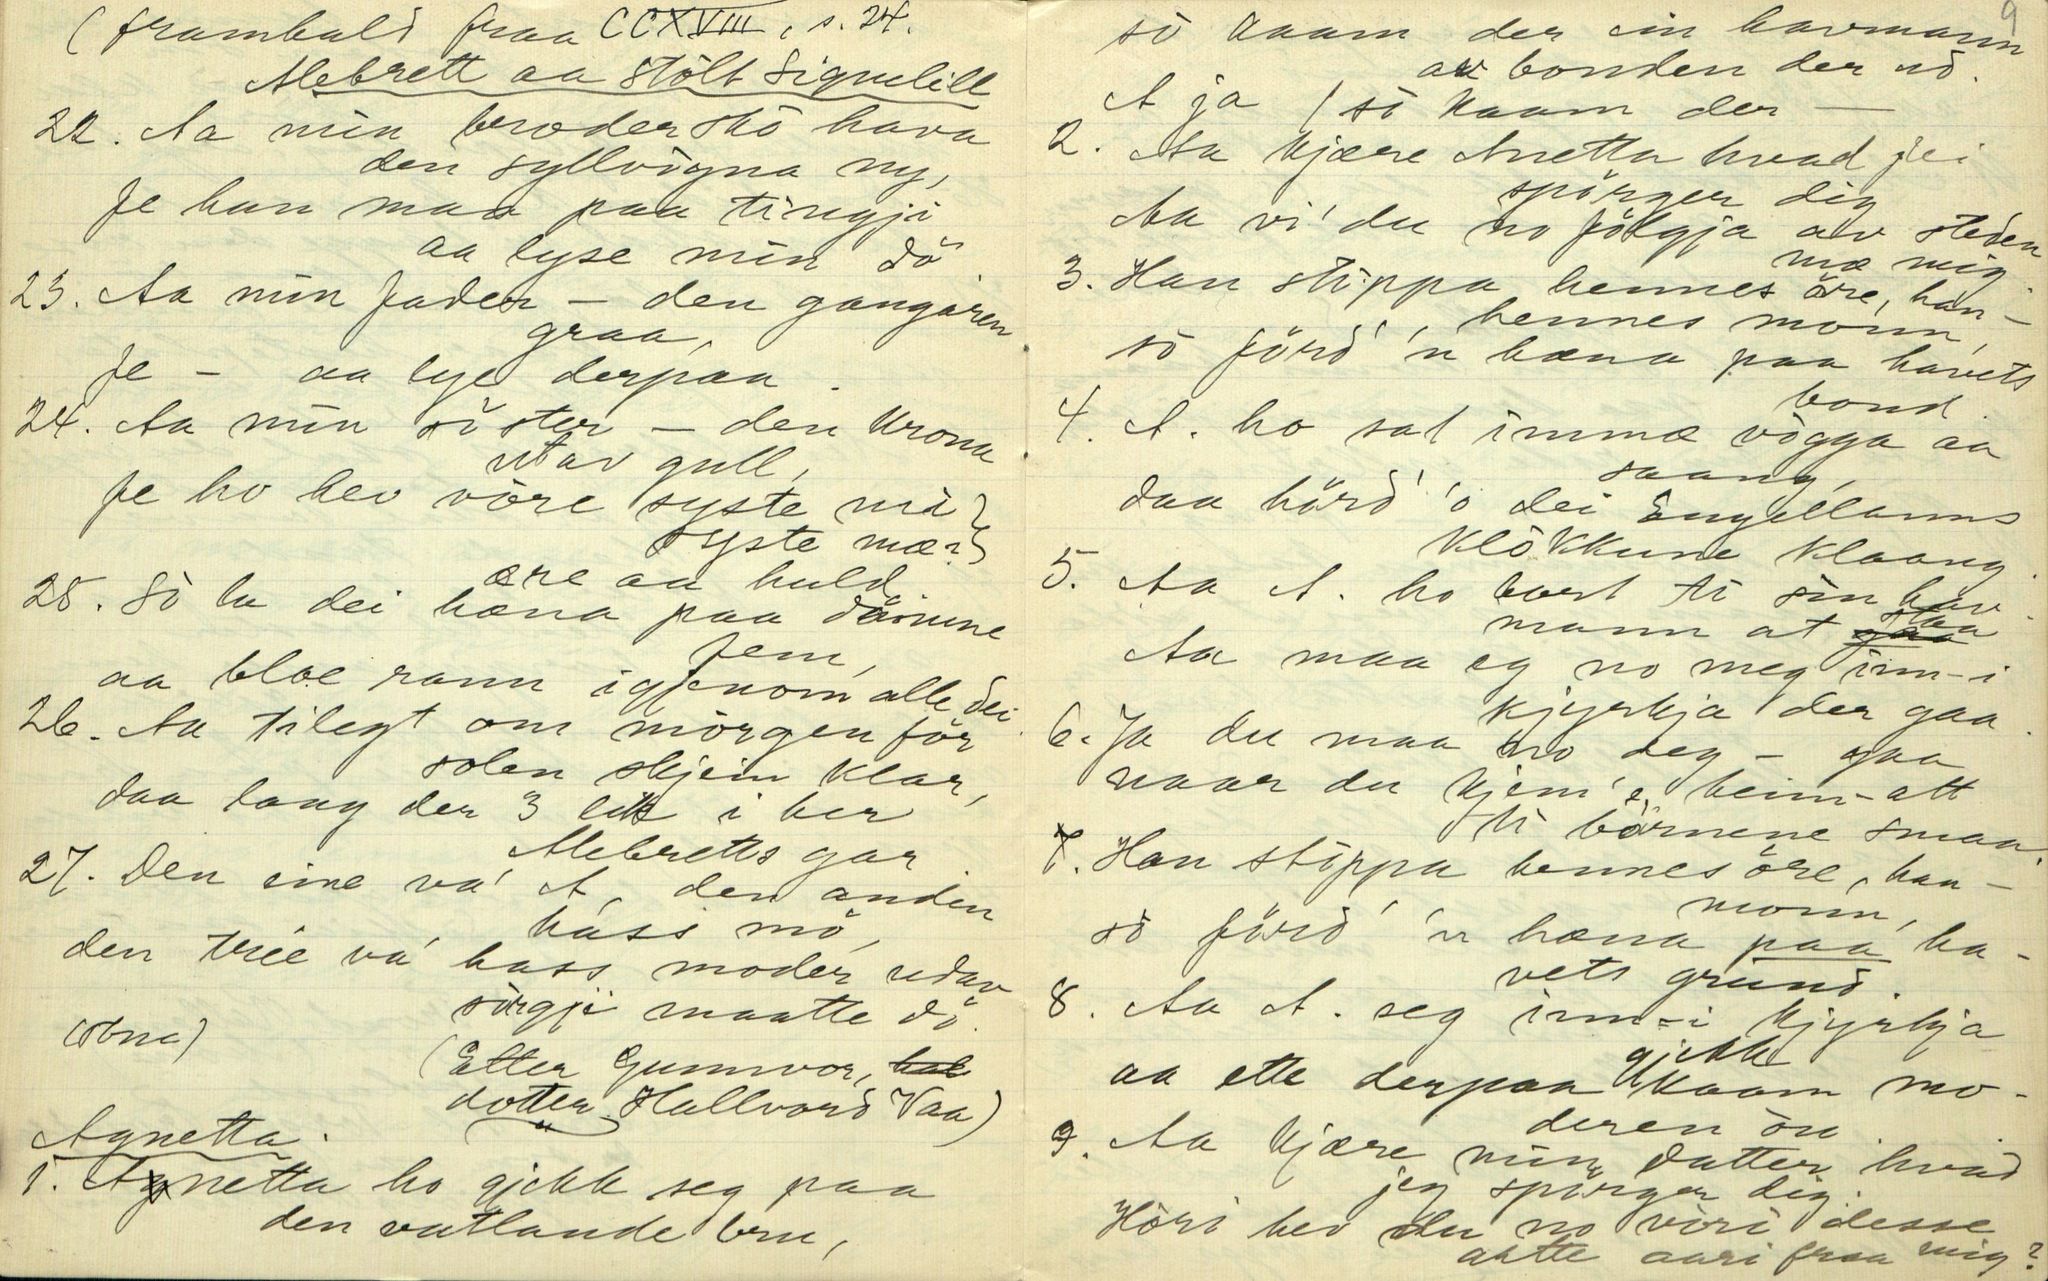 (frambald fraa CCXVIII, s. 24.
Alebrett aa stölt Signelill
22. Aa min broder skò hava
den syllvògna ny,
fe han maa paa tingji
aa lyse min dö
23. Aa min fader – den gangaren
graa,
fe – aa lye derpaa.
24. Aa min sùster – den krona
utav gull,
fe ho hev vòre syste mi
syste mæ?
ære aa huld
25. Sò la dei hæna paa dòinune
fem,
aa bloe rann igjenom alle dei
26. Aa tilegt om mòrgen för
solen skjein klar,
daa laag der 3 lik i her
Alebretts gar
27. Den eine va' A, den anden
hass mö,
den trie va' hass moder udav
sörgji maatte dö.
(tone)
(Etter Gunnvor,
dotter Hallvord Vaa)
Agnetta.
1. Agnetta ho gjekk seg paa
den vatlande bru,
9
sò kaam der ein havmann
av bonden der ud.
A ja / sò kaam der —
2. Aa kjære Anetta hvad jei
spörger dig
Aa vi' du no fölgja av steden
mæ mig
3. Han stippa hennes öre, han –
hennes monn,
sò förd' 'n hæna paa havets
bond.
4. A. ho sat imme vògga aa
saang,
daa hörd' 'o dei Engellanns
klòkkune klaang.
5. Aa A. ho bort ti sin hav-
mann at staa
Aa maa eg no meg inn-i
kjyrkja der gaa.
6. Ja du maa no deg – gaa
naar du kjem'e heim-att
ti börnene smaa.
7. Han stippa hennes öre, han –
monn,
sò förd' 'n hæna paa ha-
vets grund.
8. Aa A. seg inn-i kjyrkja
gjekk
aa ette derpaa kaam mo-
deren òu.
9. Aa kjære min datter hvad
jeg spörger dig.
Höri hev du no vòri desse
aatte aari fraa mig?